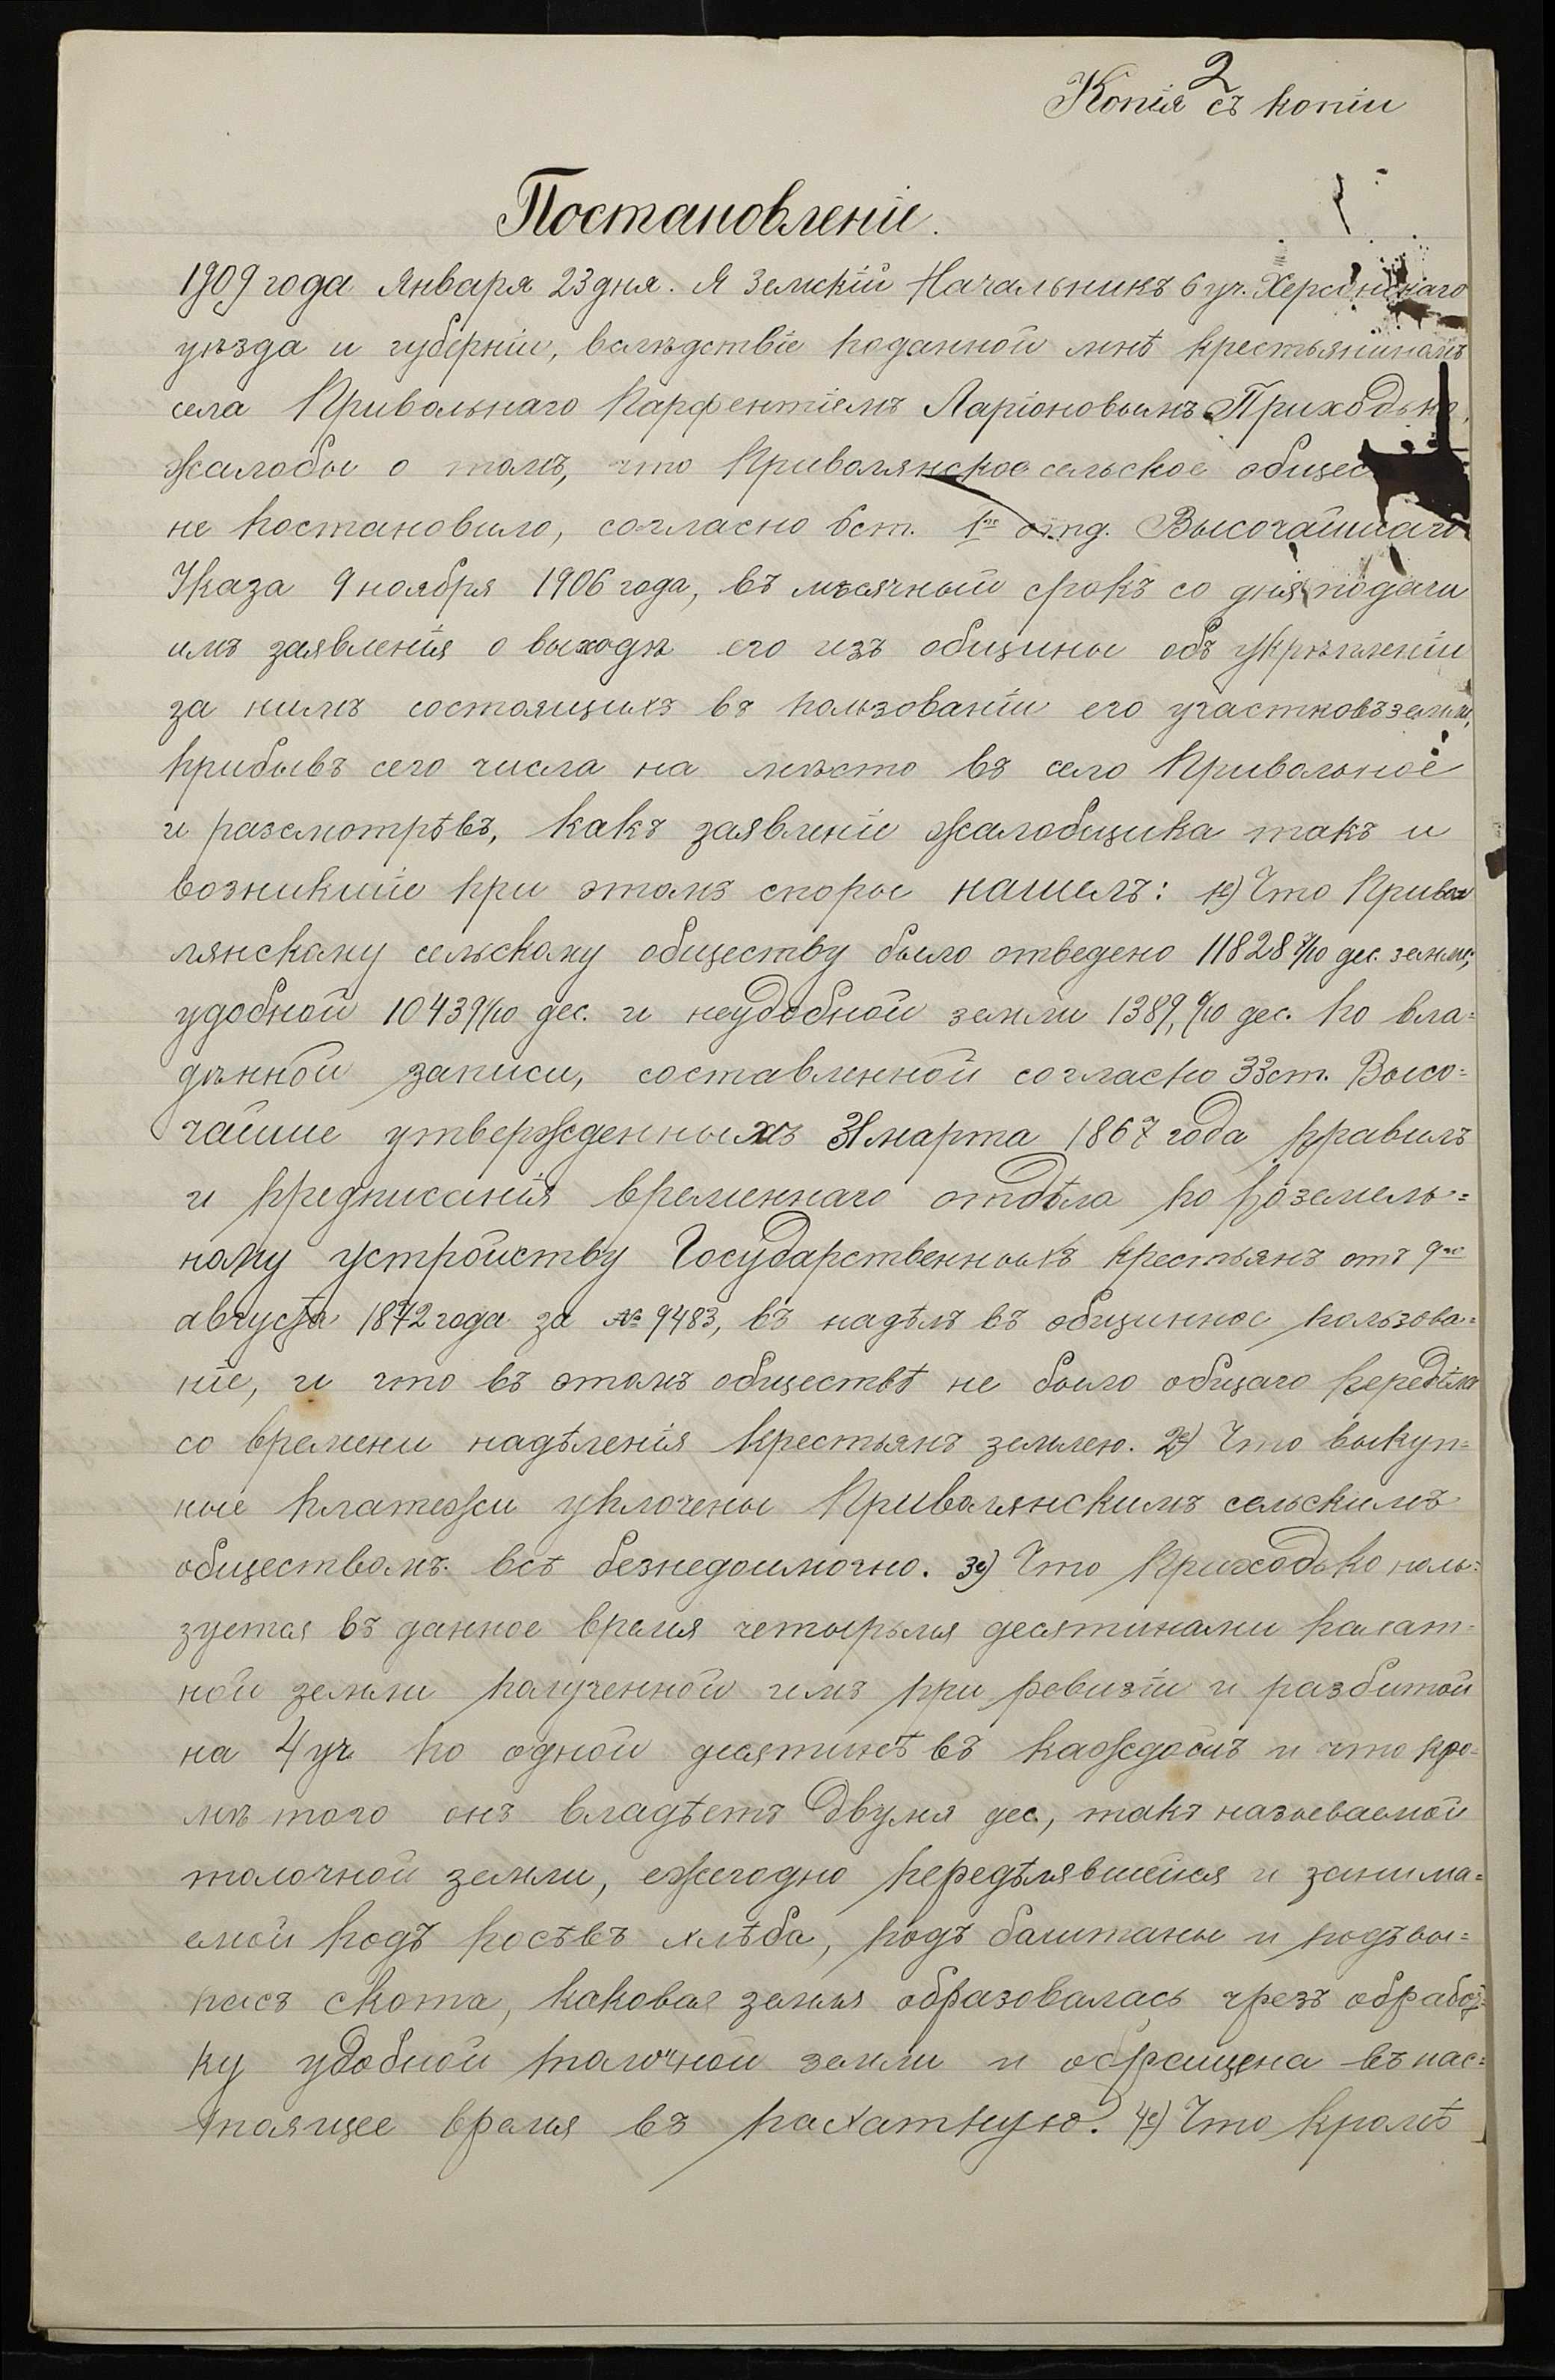 2
Копія съ копіи
Постановленіе.
1909 года Января 23 дня. Я Земскій Начальникъ 6 уч. Херсонскаго
уѣзда и губерніи, вслѣдствіе поданной мнѣ крестьяниномъ
села Привольнаго Парфентіемъ Ларіоновымъ Приходько,
жалобы о томъ, что Привольянское сельское общес
не постановило, согласно 6 ст. 1го отд. Высочайшаго
Указа 9 ноября 1906 года, въ мѣсячный срокъ со дня подачи
имъ заявленія о выходѣ его изъ общины объ укрѣпленіи
за нимъ состоящихъ въ пользованіи его участковъ земли,
прибывъ сего числа на мѣсто въ село Привольное
и разсмотрѣвъ, какъ заявленіе жалобщика такъ и
возникшіе при этомъ споры нашелъ: 1е) Что Приво
лянскому сельскому обществу было отведено 11828 дес. земли,
удобной 10439 дес. и неудобной земли 1389, дес. по вла=
дѣнной записи, составленной согласно 33 ст. Высо=
чайше утвержденныхъ 31 марта 1867 года правилъ
и предписанія временнаго отдѣла по поземель=
ному устройству Государственныхъ крестьянъ отъ 9го
августа 1872 года за № 9483, въ надѣлъ въ общинное пользова=
ніе, и что въ этомъ обществѣ не было общаго передѣла
со времени надѣленія крестьянъ землею. 2е) Что выкуп=
ные платежи уплочены Привольянскимъ сельскимъ
обществомъ всѣ безнедоимочно. 3е) Что Приходько поль=
зуется въ данное время четырьмя десятинами пахат=
ной земли полученной имъ при ревизіи и разбитой
на 4 уч. по одной десятинѣ въ каждомъ и что кро=
мѣ того онъ владѣетъ двумя дес., такъ называемой
толочной земли, ежегодно передѣлявшейся и занима=
емой подъ посѣвъ хлѣба, подъ баштаны и подъ вы=
пасъ скота, каковая земля образовалась чрезъ обработ=
ку удобной толочной земли и обращена въ нас=
тоящее время въ пахатную. 4е) Что кромѣ